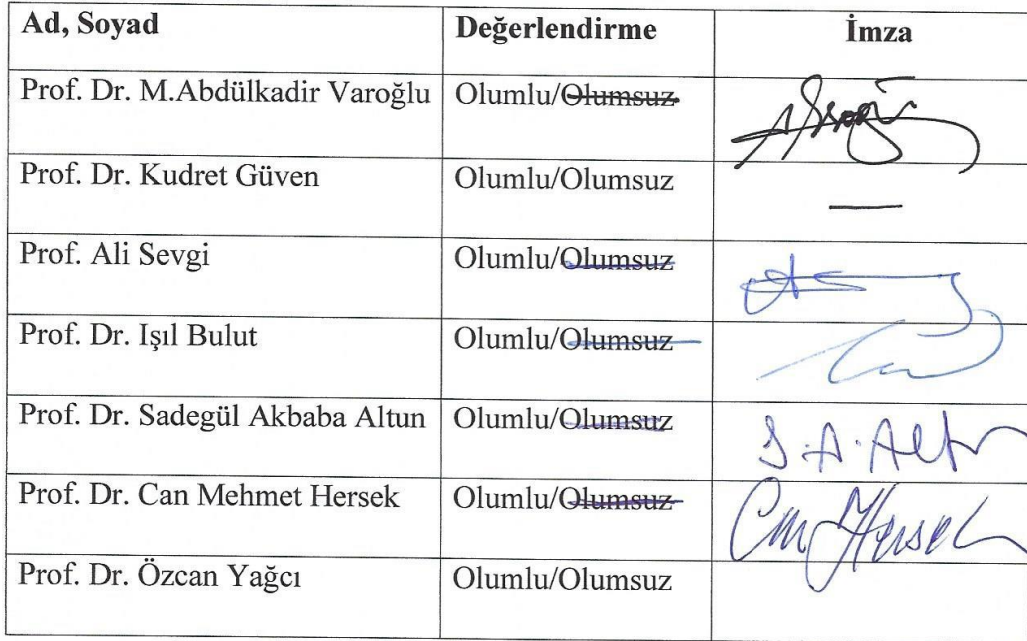 Ad, Soyad Değerlendirme İmza
Prof. Dr. M.Abdülkadir Varoğlu Olumlu/Olumsuz
Prof. Dr. Kudret Güven Olumlu/Olumsuz —
Prof. Ali Sevgi Olumlu/Olumsuz
Prof. Dr. Işıl Bulut Olumlu/Olumsuz
Prof. Dr. Sadegül Akbaba Altun Olumlu/Olumsuz
Prof. Dr. Can Mehmet Hersek Olumlu/Olumsuz Can Hersek
Prof. Dr. Özcan Yağcı Olumlu/Olumsuz